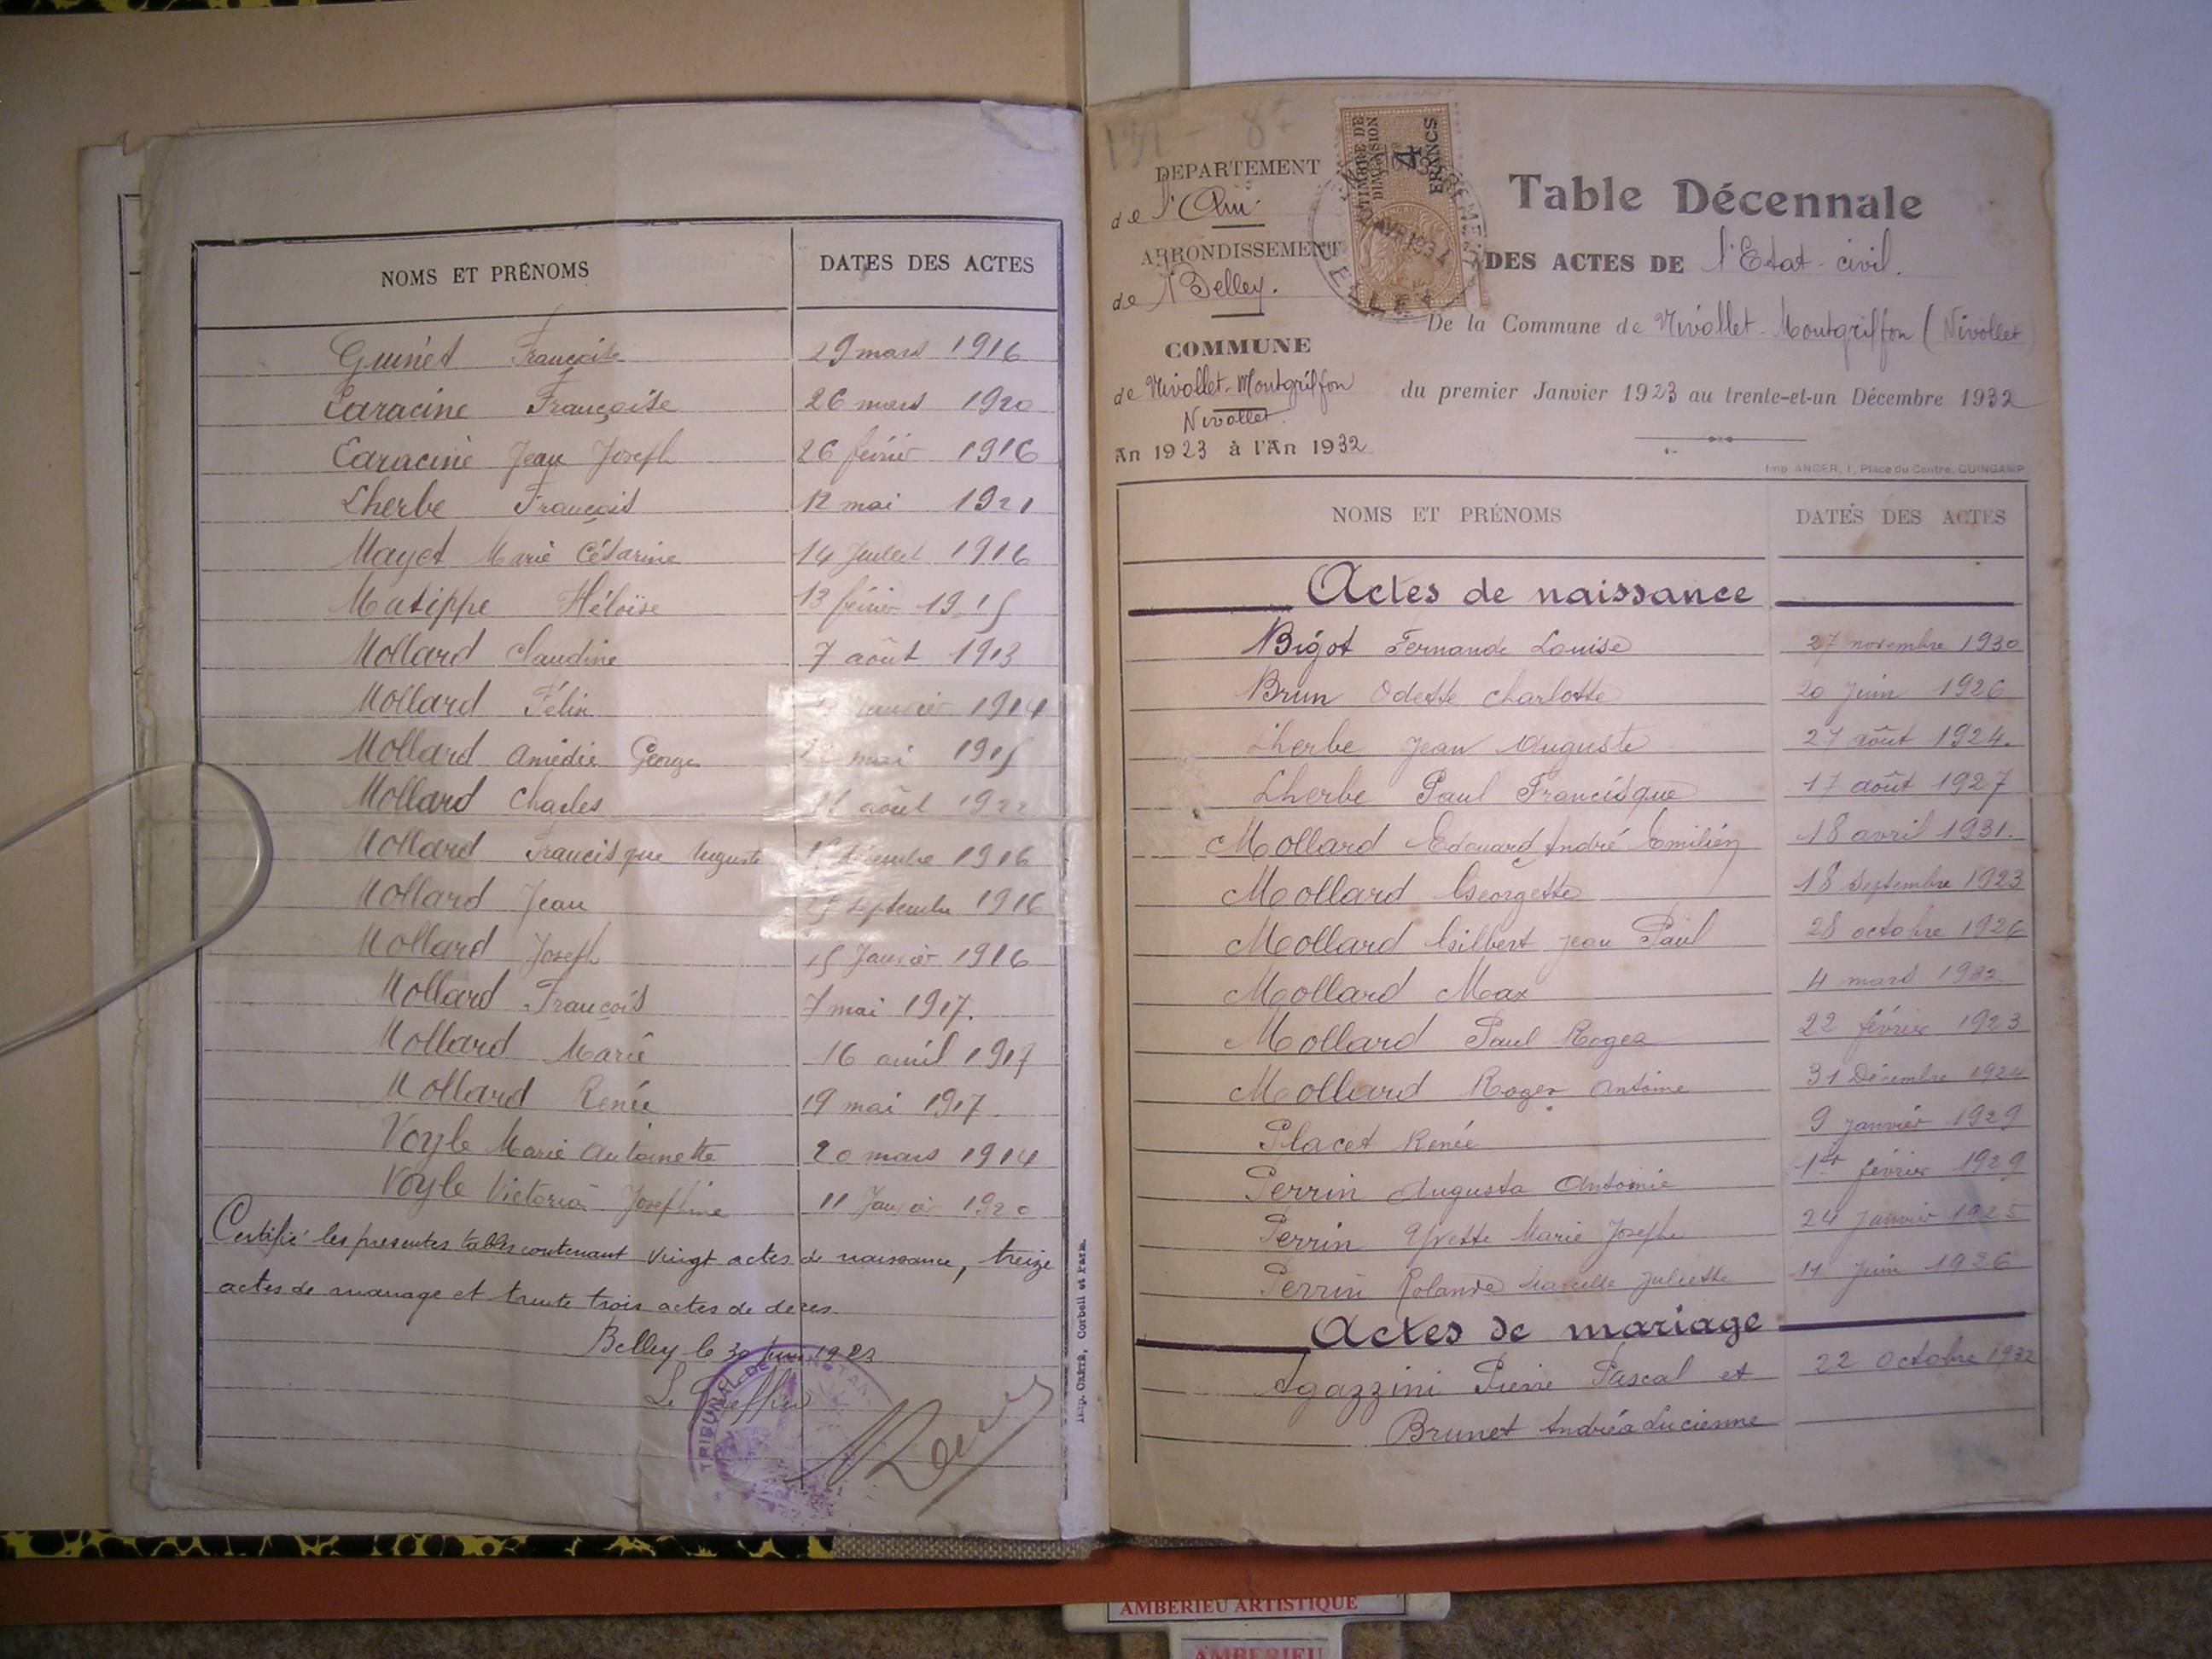 NOMS ET PRÉNOMS DATES DES ACTES
Guinet Françoise 29 mars 1916
Laracine Françoise 26 mars 1920
Laracine Jean Joseph 26 février 1916
Lherbe François 12 mai 1921
Mayet Marie Césarine 14 Juillet 1916
Matippe Héloïse 13 février 1915
Mollard Claudine 7 août 1913
Mollard Félix janvier 1914
Mollard Amédée Georges mai 1915
Mollard Charles août 1922
Mollard Francisque Auguste décembre 1916
Mollard Jean septembre 1916
Mollard Joseph 15 Janvier 1916
Mollard François 7 mai 1917.
Mollard Marie 16 avril 1917
Mollard Renée 19 mai 1917.
Voyle Marie Antoinette 20 mars 1914
Voyle Victoria Joséphine 11 Janvier 1920
Certifié les presentes tables contenant vingt actes de naissance, treize
actes de mariage et trente trois actes de deces.
Belley le 30 Juin 1923
Le Greffier
TRIBUNAL DE
Imp. Crété, Corbeil et Paris.
DEPARTEMENT
de l'Ain
ARRONDISSEMENT
de Belley.
COMMUNE
de Nivollet-Montgriffon
Nivollet.
An 1923 à l'An 1932
TIMBRE DE
DIMENSION
4
FRANCS
Table Décennale
DES ACTES DE l'Etat-civil.
De la Commune de Nivollet-Montgriffon (Nivollet
du premier Janvier 1923 au trente-et-un Décembre 1932
Imp. ANGER, 1, Place du Centre, GUINGAMP
NOMS ET PRÉNOMS DATES DES ACTES
Actes de naissance
Bigot Fernande Louise 27 novembre 1930
Brun Odette Charlotte 20 Juin 1926
Lherbe Jean Auguste 27 août 1924.
Lherbe Paul Francisque 17 août 1927
Mollard Edouard André Emilien 18 avril 1931.
Mollard Georgette 18 Septembre 1923
Mollard Gilbert Jean Paul 28 octobre 1926
Mollard Max 4 mars 1932
Mollard Paul Roger 22 février 1923
Mollard Roger Antoine 31 Décembre 1924
Placet Renée 9 janvier 1929
Perrin Augusta Antonie 1er février 1929
Perrin Yvette Marie Josephe 24 Janvier 1925
Perrin Rolande Marcelle Juliette 11 Juin 1926
Actes de mariage
Agazzini Pierre Pascal et 22 Octobre 1932
Brunet Andréa Lucienne
AMBERIEU ARTISTIQUE
AMBERIEU